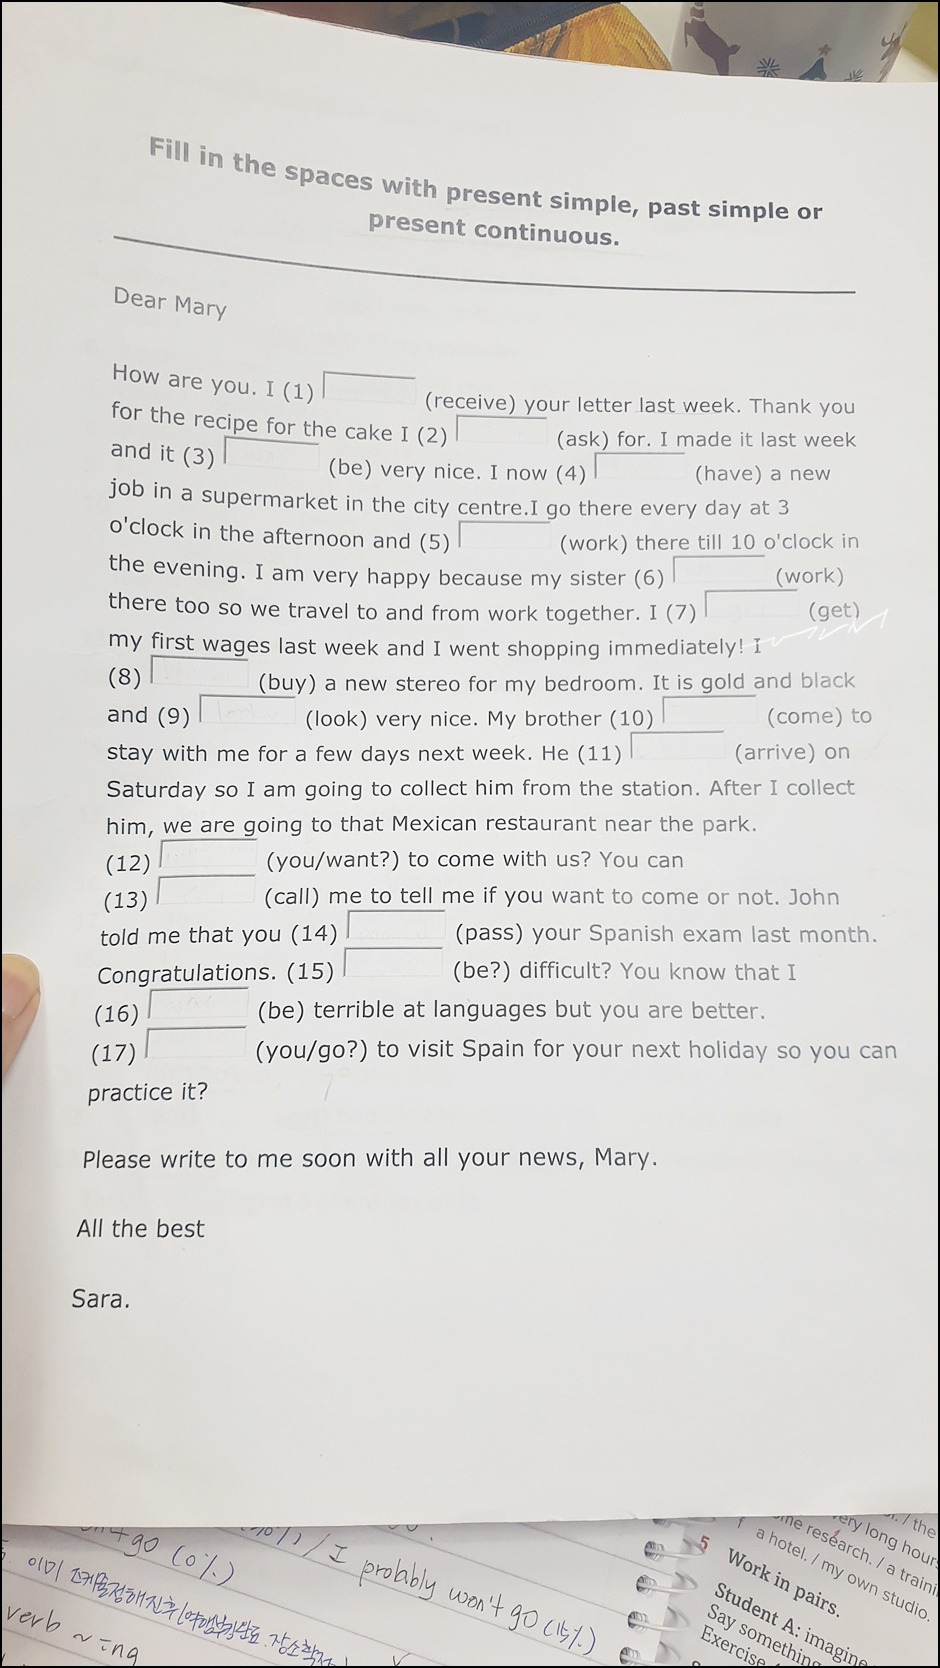 Fill in the spaces with present simple, past simple or
present continuous.
Dear Mary
How are you. I (1) (receive) your letter last week. Thank you
for the recipe for the cake I (2) (ask) for. I made it last week
and it (3) (be) very nice. I now (4) (have) a new
job in a supermarket in the city centre.I go there every day at 3
o'clock in the afternoon and (5) (work) there till 10 o'clock in
the evening. I am very happy because my sister (6) (work)
there too so we travel to and from work together. I (7) (get)
my first wages last week and I went shopping immediately! I
(8) (buy) a new stereo for my bedroom. It is gold and black
and (9) (look) very nice. My brother (10) (come) to
stay with me for a few days next week. He (11) (arrive) on
Saturday so I am going to collect him from the station. After I collect
him, we are going to that Mexican restaurant near the park.
(12) (you/want?) to come with us? You can
(13) (call) me to tell me if you want to come or not. John
told me that you (14) (pass) your Spanish exam last month.
Congratulations. (15) (be?) difficult? You know that I
(16) (be) terrible at languages but you are better.
(17) (you/go?) to visit Spain for your next holiday so you can
practice it?
Please write to me soon with all your news, Mary.
All the best
Sara.
go (0%)
/ I probably won't go (15%)
이미
verb ~ing
/ the
very long hour
me research. / a traini
a hotel. / my own studio.
5 Work in pairs.
Student A: imagine
Say something
Exercise